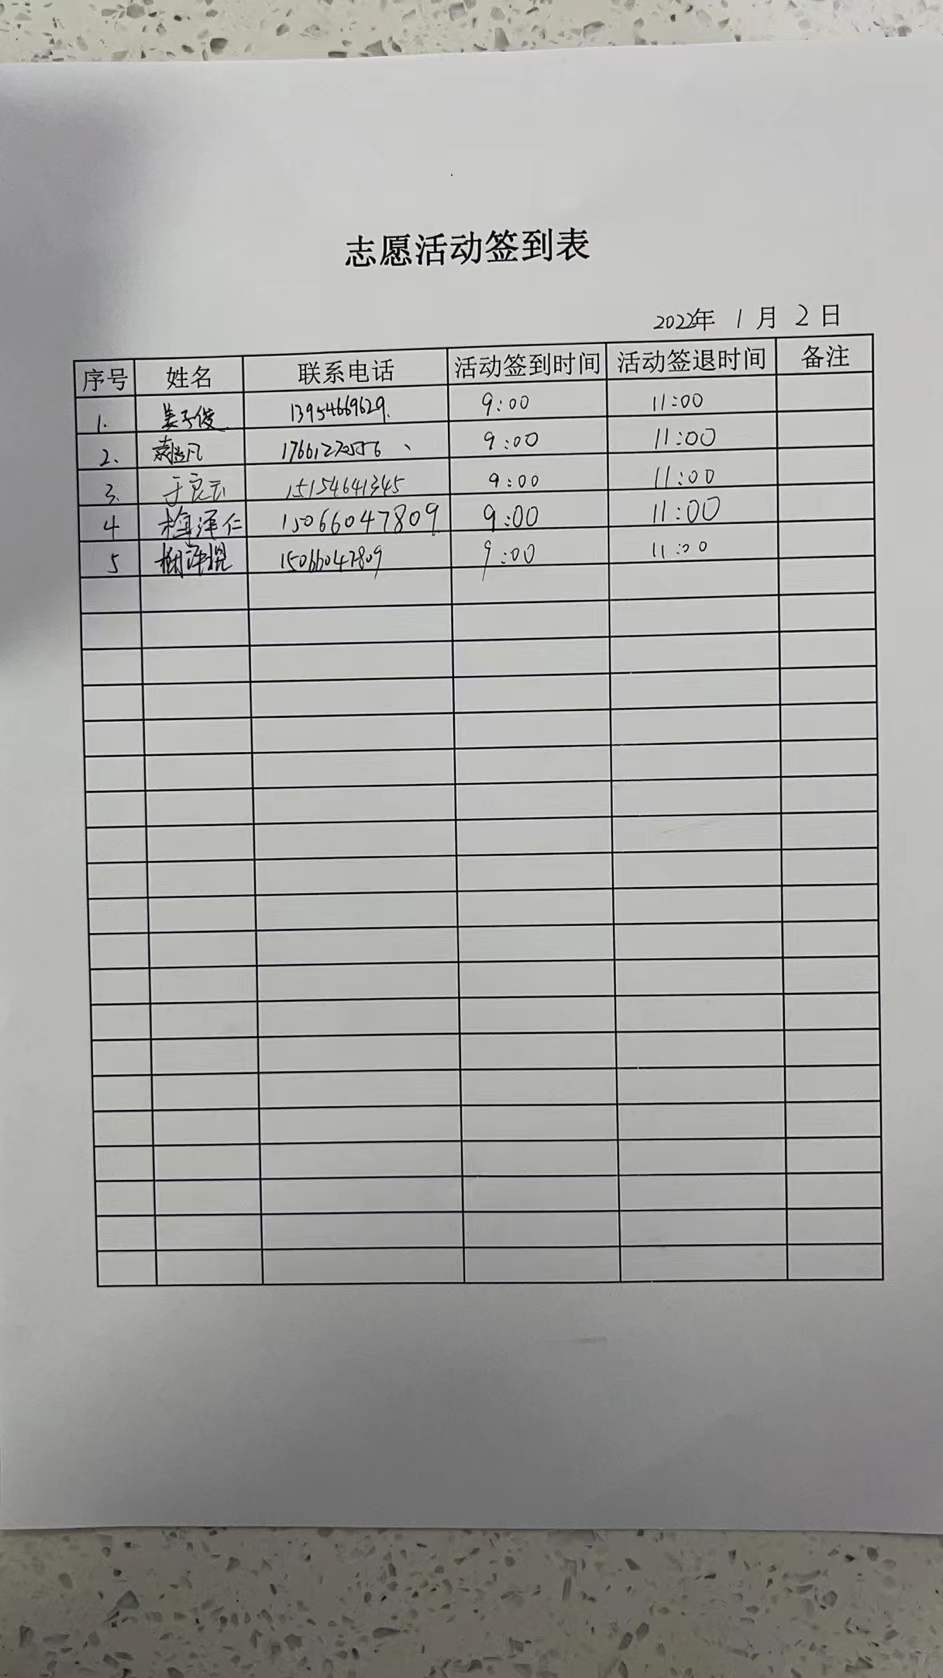 志愿活动签到表
2022年 1 月 2 日
序号 姓名 联系电话 活动签到时间 活动签退时间 备注
1. 姜子俊 13954669629. 9:00 11:00
2、 9:00 11:00
3. 于良云 15154641345 9:00 11:00
4 梅泽仁 15066047809 9:00 11:00
5 15066047809 9:00 11:00